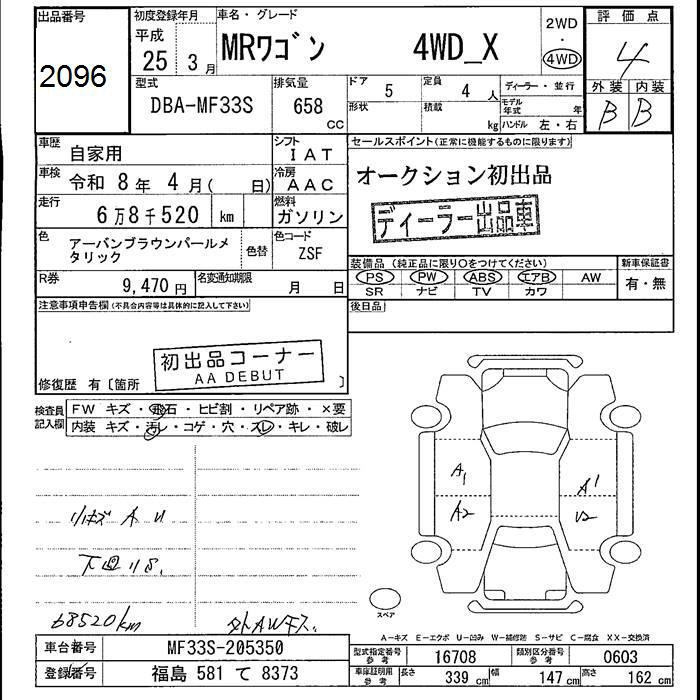 出品番号
2096
初度登録年月
平成
25年 3月
車名・グレード
MRワゴン 4WD_X
2WD
・
4WD
評価点
4
外装 内装
B B
型式
DBA-MF33S
排気量
658 cc
ドア 5
定員 4 人
形状
積載 kg
ディーラー・並行
モデル年式 年
ハンドル 左・右
車歴 自家用
シフト IAT
車検 令和 8年 4月( 日)
冷房 AAC
走行 6万8千520 km
燃料 ガソリン
色 アーバンブラウンパールメタリック
色替
色コード ZSF
R券 9,470円
名変通知期限 月 日
セールスポイント(正常に機能するものに限ります)
オークション初出品
ディーラー出品車
装備品(純正品に限り○をつけてください)
新車保証書
PS PW ABS エアB AW
SR ナビ TV カワ
有・無
後日品
注意事項申告欄(不具合内容等は具体的に記入して下さい)
初出品コーナー
AA DEBUT
修復歴 有〔箇所 〕
検査員記入欄
FW キズ・飛石・ヒビ割・リペア跡・×要
内装 キズ・汚レ・コゲ・穴・スレ・キレ・破レ
小キズ A U
下回りS.
68520km
外AWキズ.
A1
A2
A1
U2
スペア
A-キズ E-エクボ U-凹み W-補修跡 S-サビ C-腐食 XX-交換済
車台番号 MF33S-205350
登録番号 福島 581 て 8373
型式指定番号 参考 16708
類別区分番号 参考 0603
車庫証明用 参考 長さ 339 cm 幅 147 cm 高さ 162 cm